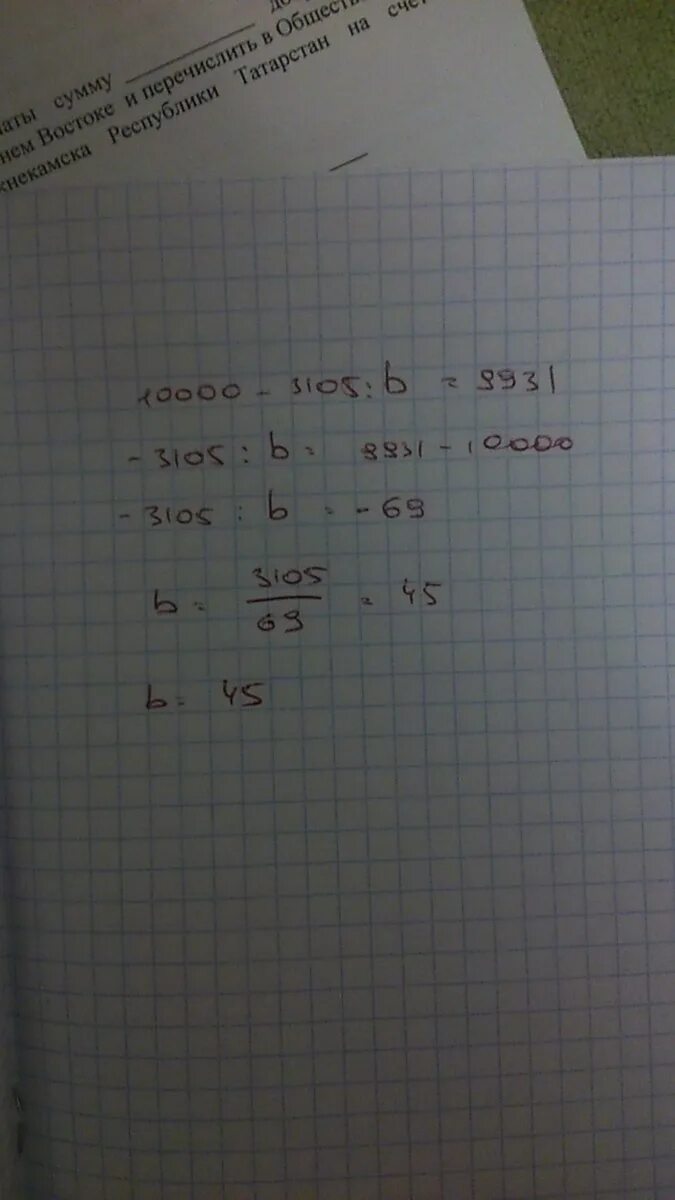 сумму
нем Востоке и перечислить в Обществ
Республики Татарстан на сче
10000 - 3105 : b = 9931
- 3105 : b = 9931 - 10000
- 3105 : b = - 69
b = 3105 / 69 = 45
b = 45